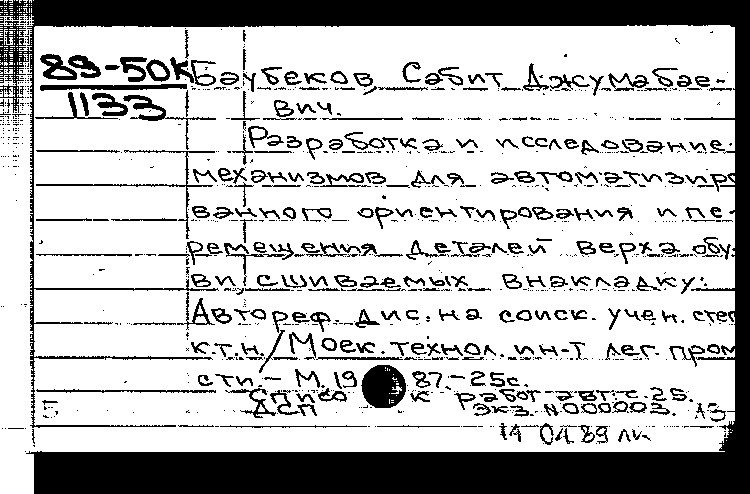 89-50К
1133
Баубеков, Сабит Джумабае-
вич.
Разработка и исследование
механизмов для автоматизиро
ванного ориентирования и пе-
ремещения деталей верха обу-
ви, сшиваемых внакладку:
Автореф. дис. на соиск. учен. степ
к.т.н. / Моск. технол. ин-т лег. пром
сти. - М. 1987. - 25с.
Список работ авт.: с. 25.
ДСП Экз. N000003.
5
14 04 89 лк